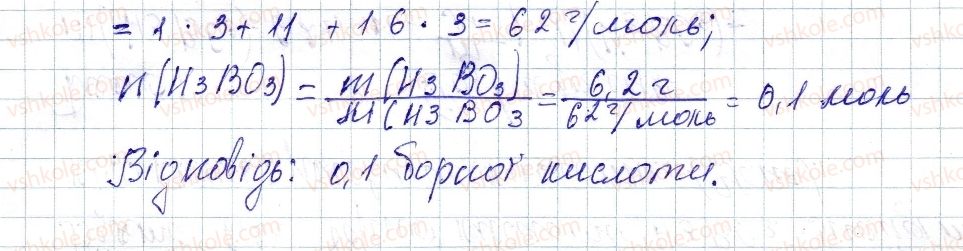 = 1 · 3 + 11 + 16 · 3 = 62 г/моль;
n(H3BO3) = m(H3BO3) / M(H3BO3 = 6,2 г / 62 г/моль = 0,1 моль
Відповідь: 0,1 борної кислоти.